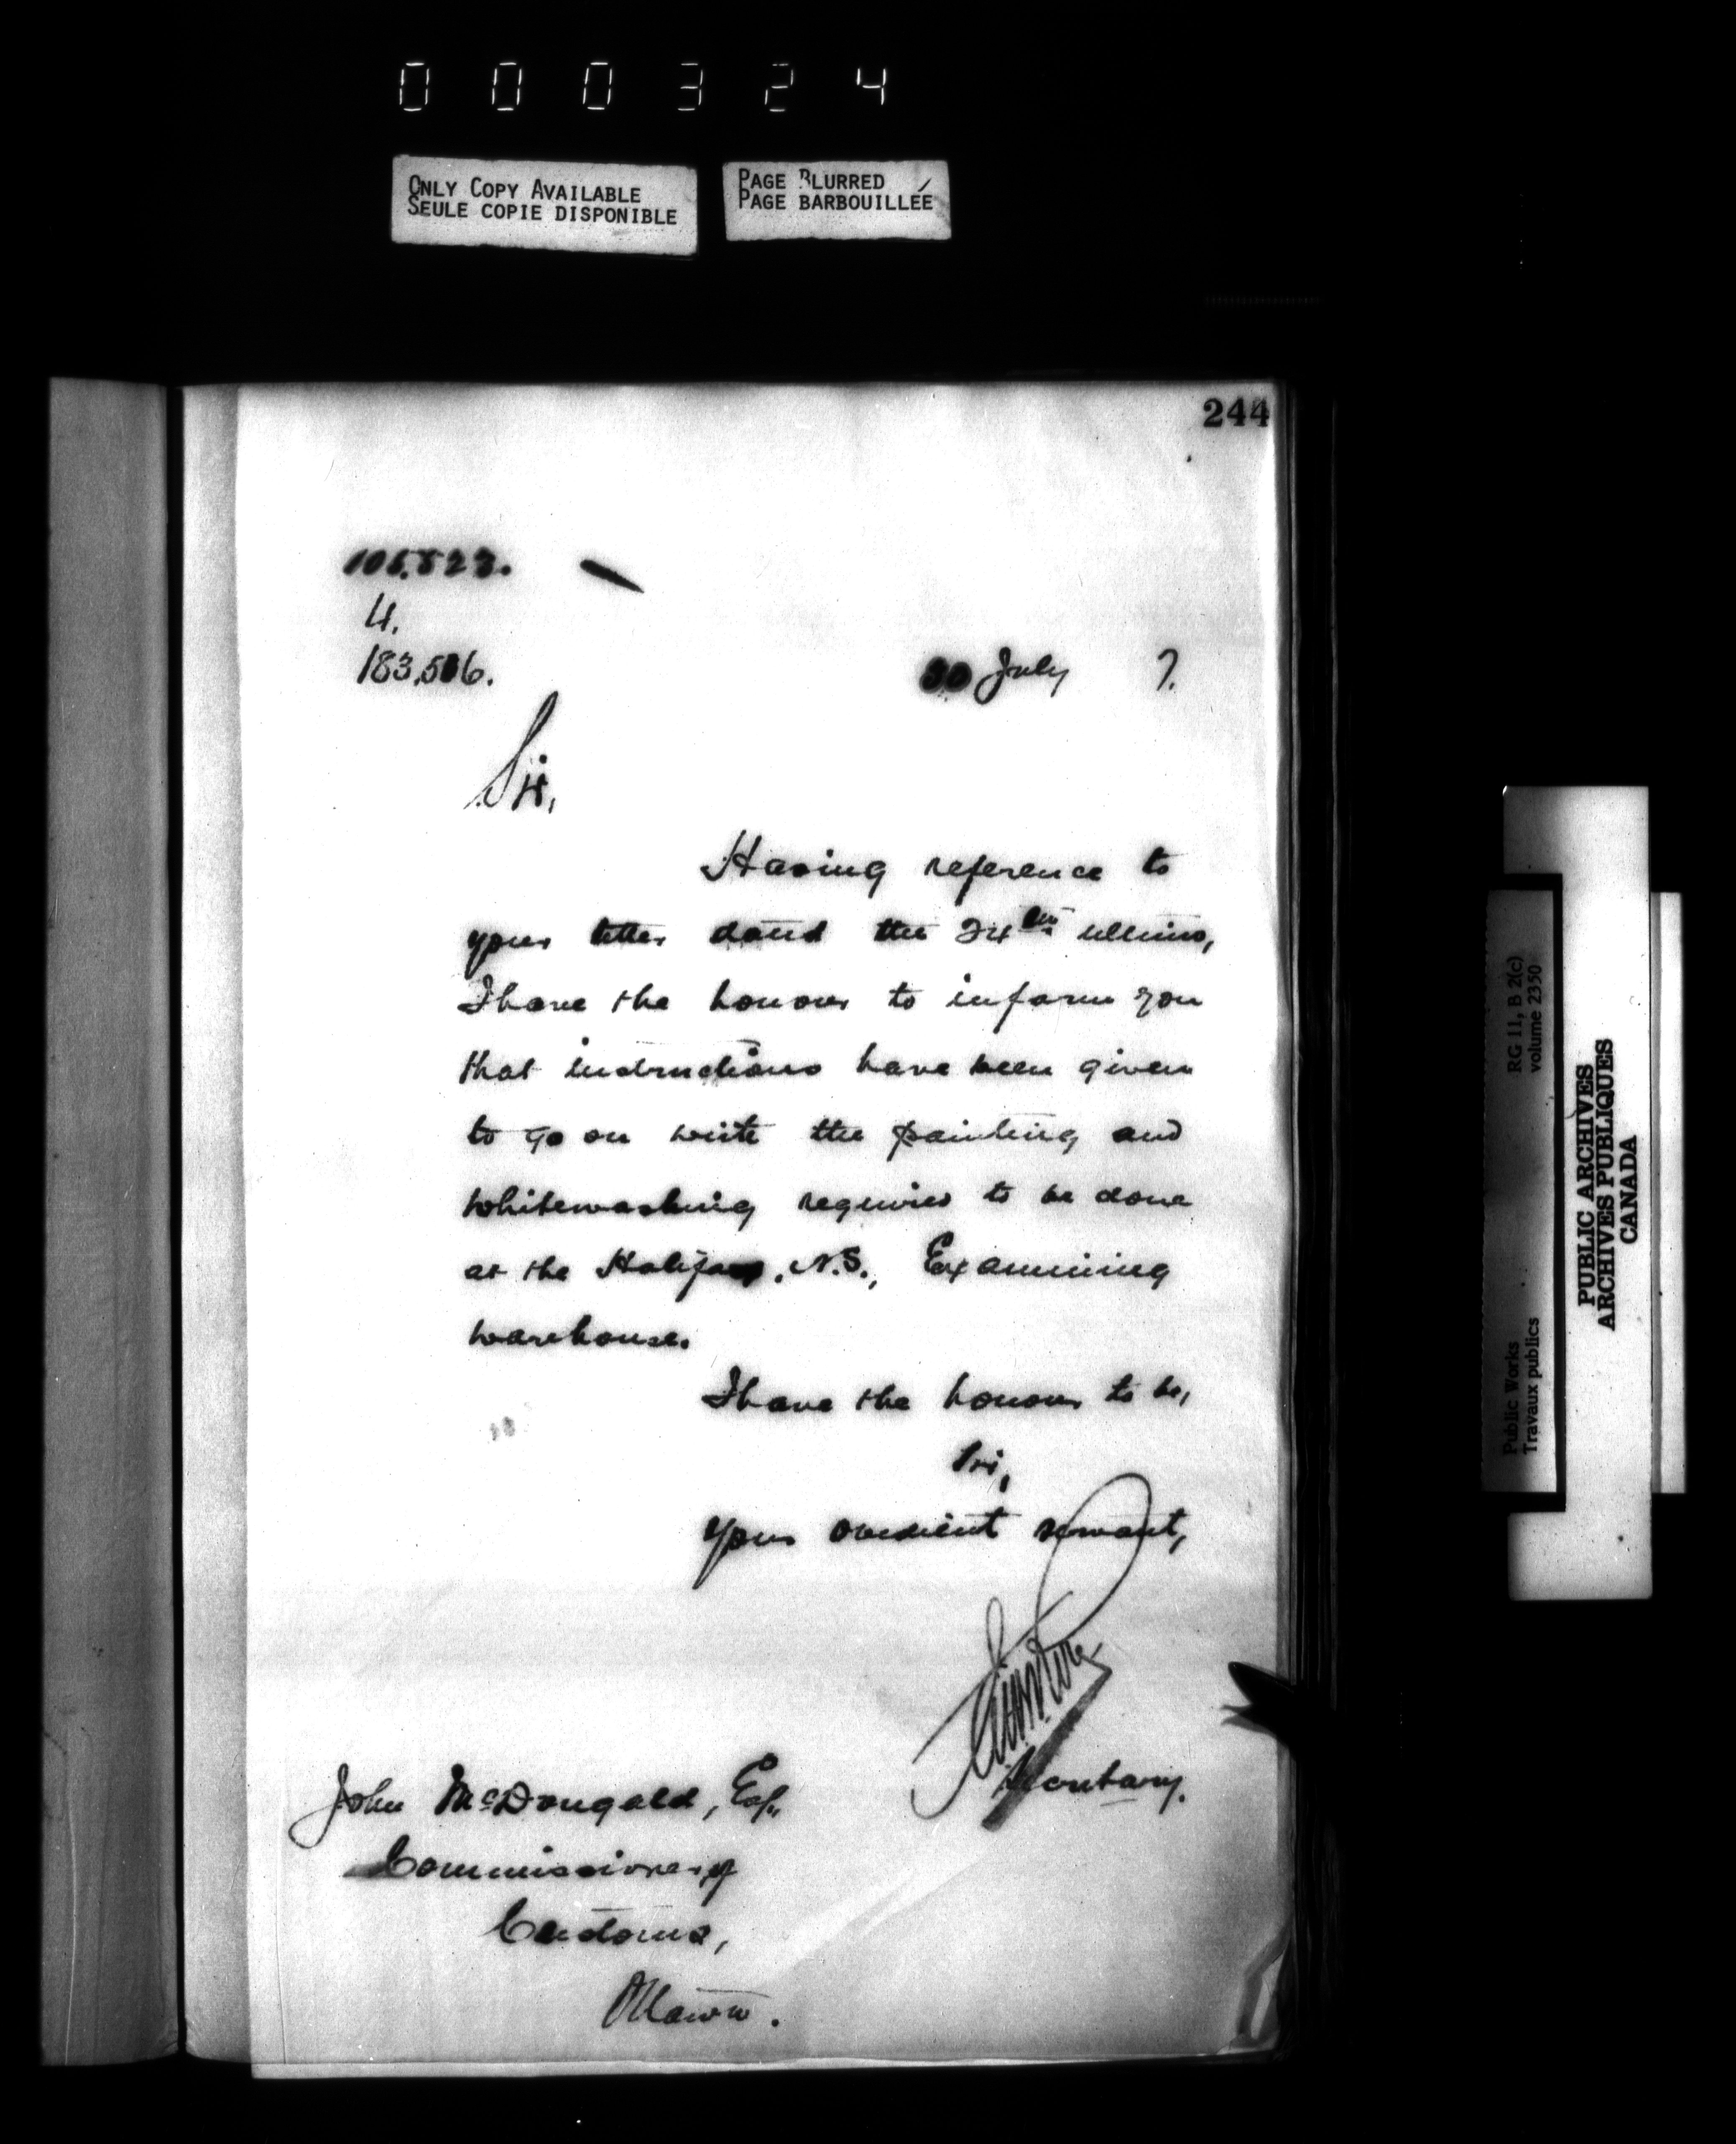 000324
ONLY COPY AVAILABLE
SEULE COPIE DISPONIBLE
PAGE BLURRED
PAGE BARBOUILLÉE
244
4.
30 July 7.
Sir,
Having reference to
your letter dated the 24th ultimo,
I have the honour to inform you
that instructions have been given
to go on with the painting and
whitewashing required to be done
at the Halifax, N.S., Examining
warehouse.
I have the honour to be,
Sir,
Your obedient servant,
Secretary.
John McDougald, Esq.,
Commissioner of
Customs,
Ottawa.
RG 11, B 2(c)
volume 2350
Public Works
Travaux publics
PUBLIC ARCHIVES
ARCHIVES PUBLIQUES
CANADA